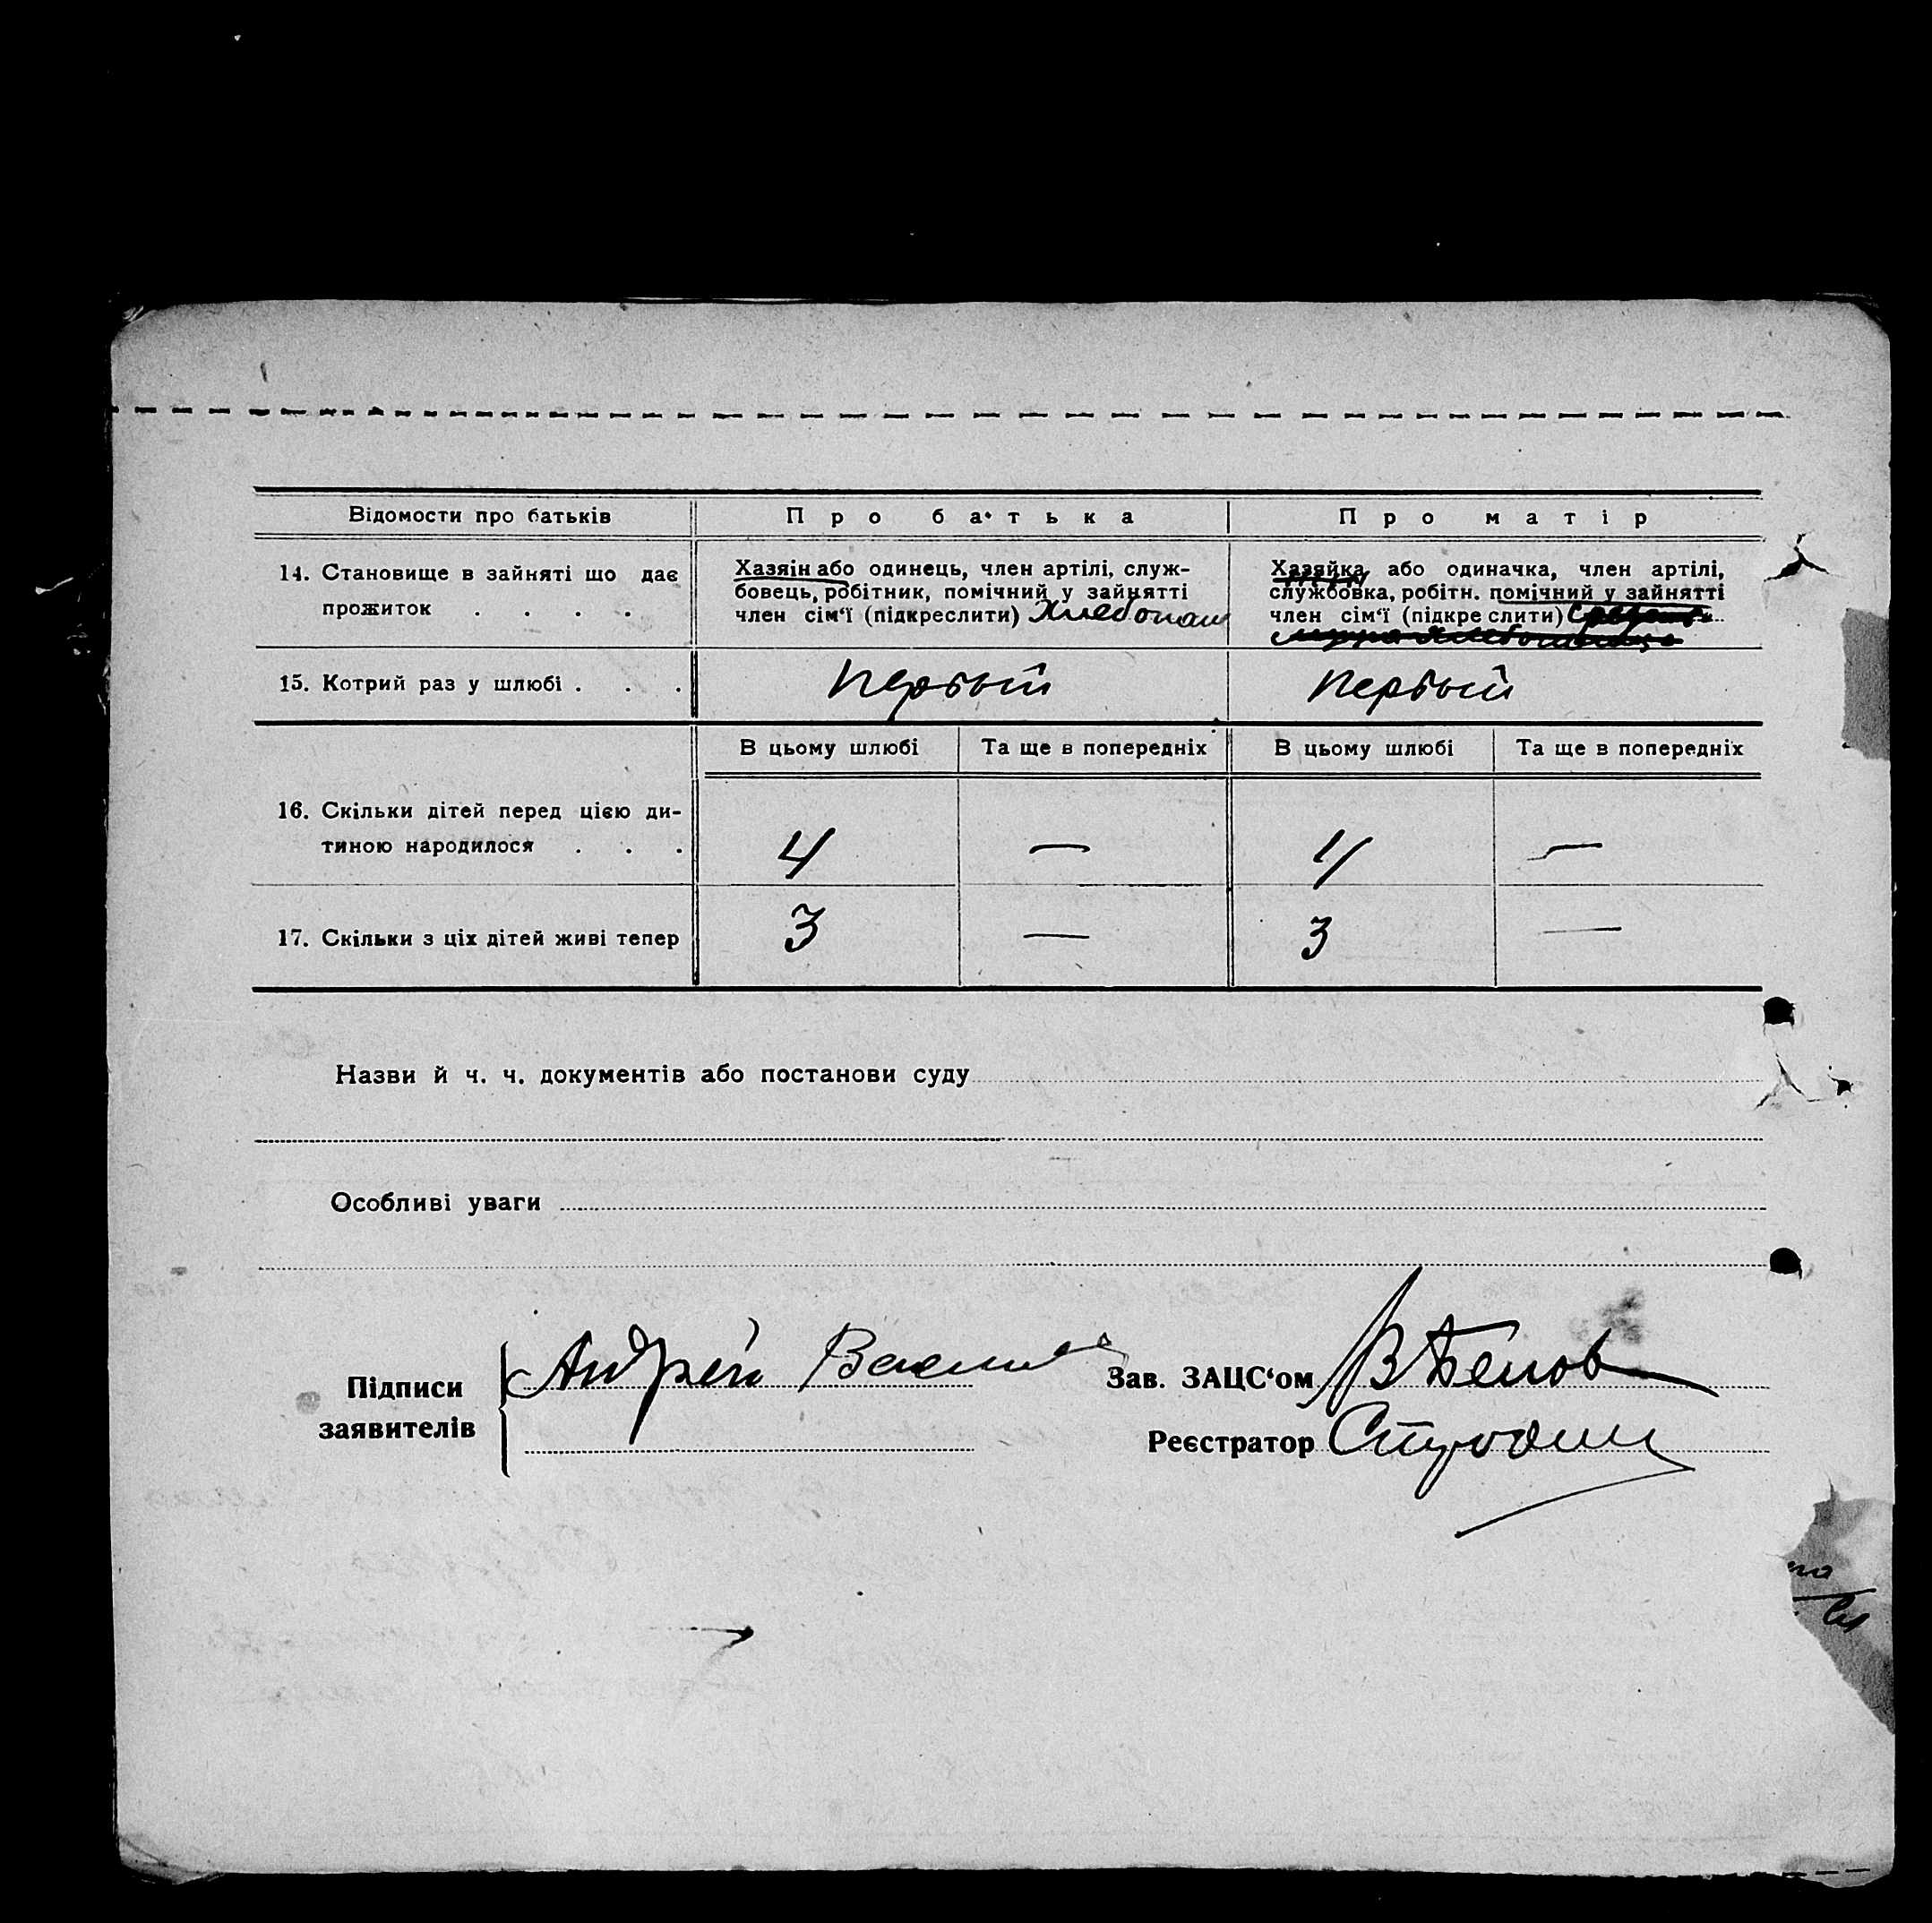 Відомости про батьків Про батька Про матір
14. Становище в зайняті що дає
прожиток . . . .
Хазяін або одинець, член артілі, служ-
бовець, робітник, помічний у зайнятті
член сім'ї (підкреслити) Хлебопаш
Хазяйка або одиначка, член артілі,
службовка, робітн. помічний у зайнятті
член сім'ї (підкре слити)
15. Котрий раз у шлюбі . . . Первый Первый
В цьому шлюбі Та ще в попередніх В цьому шлюбі Та ще в попередніх
16. Скільки дітей перед цією ди-
тиною народилося . . . 4 — 4 —
17. Скільки з ціх дітей живі тепер 3 — 3 —
Назви й ч. ч. документів або постанови суду
Особливі уваги
Підписи
заявителів
Андрей
Зав. ЗАЦС'ом
Реєстратор